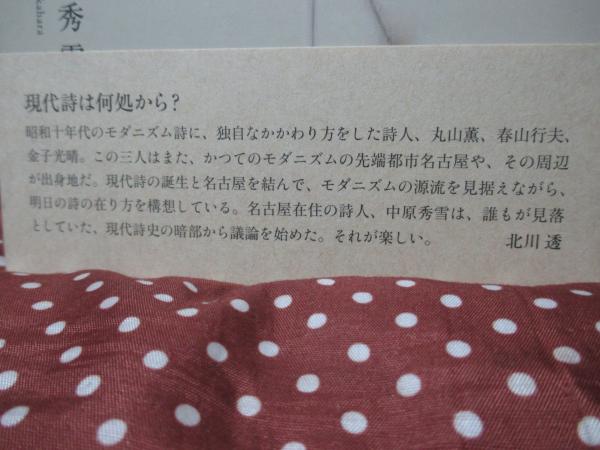 秀雪
kahara
現代詩は何処から？
昭和十年代のモダニズム詩に、独自なかかわり方をした詩人、丸山薫、春山行夫、
金子光晴。この三人はまた、かつてのモダニズムの先端都市名古屋や、その周辺
が出身地だ。現代詩の誕生と名古屋を結んで、モダニズムの源流を見据えながら、
明日の詩の在り方を構想している。名古屋在住の詩人、中原秀雪は、誰もが見落
としていた、現代詩史の暗部から議論を始めた。それが楽しい。
北川 透